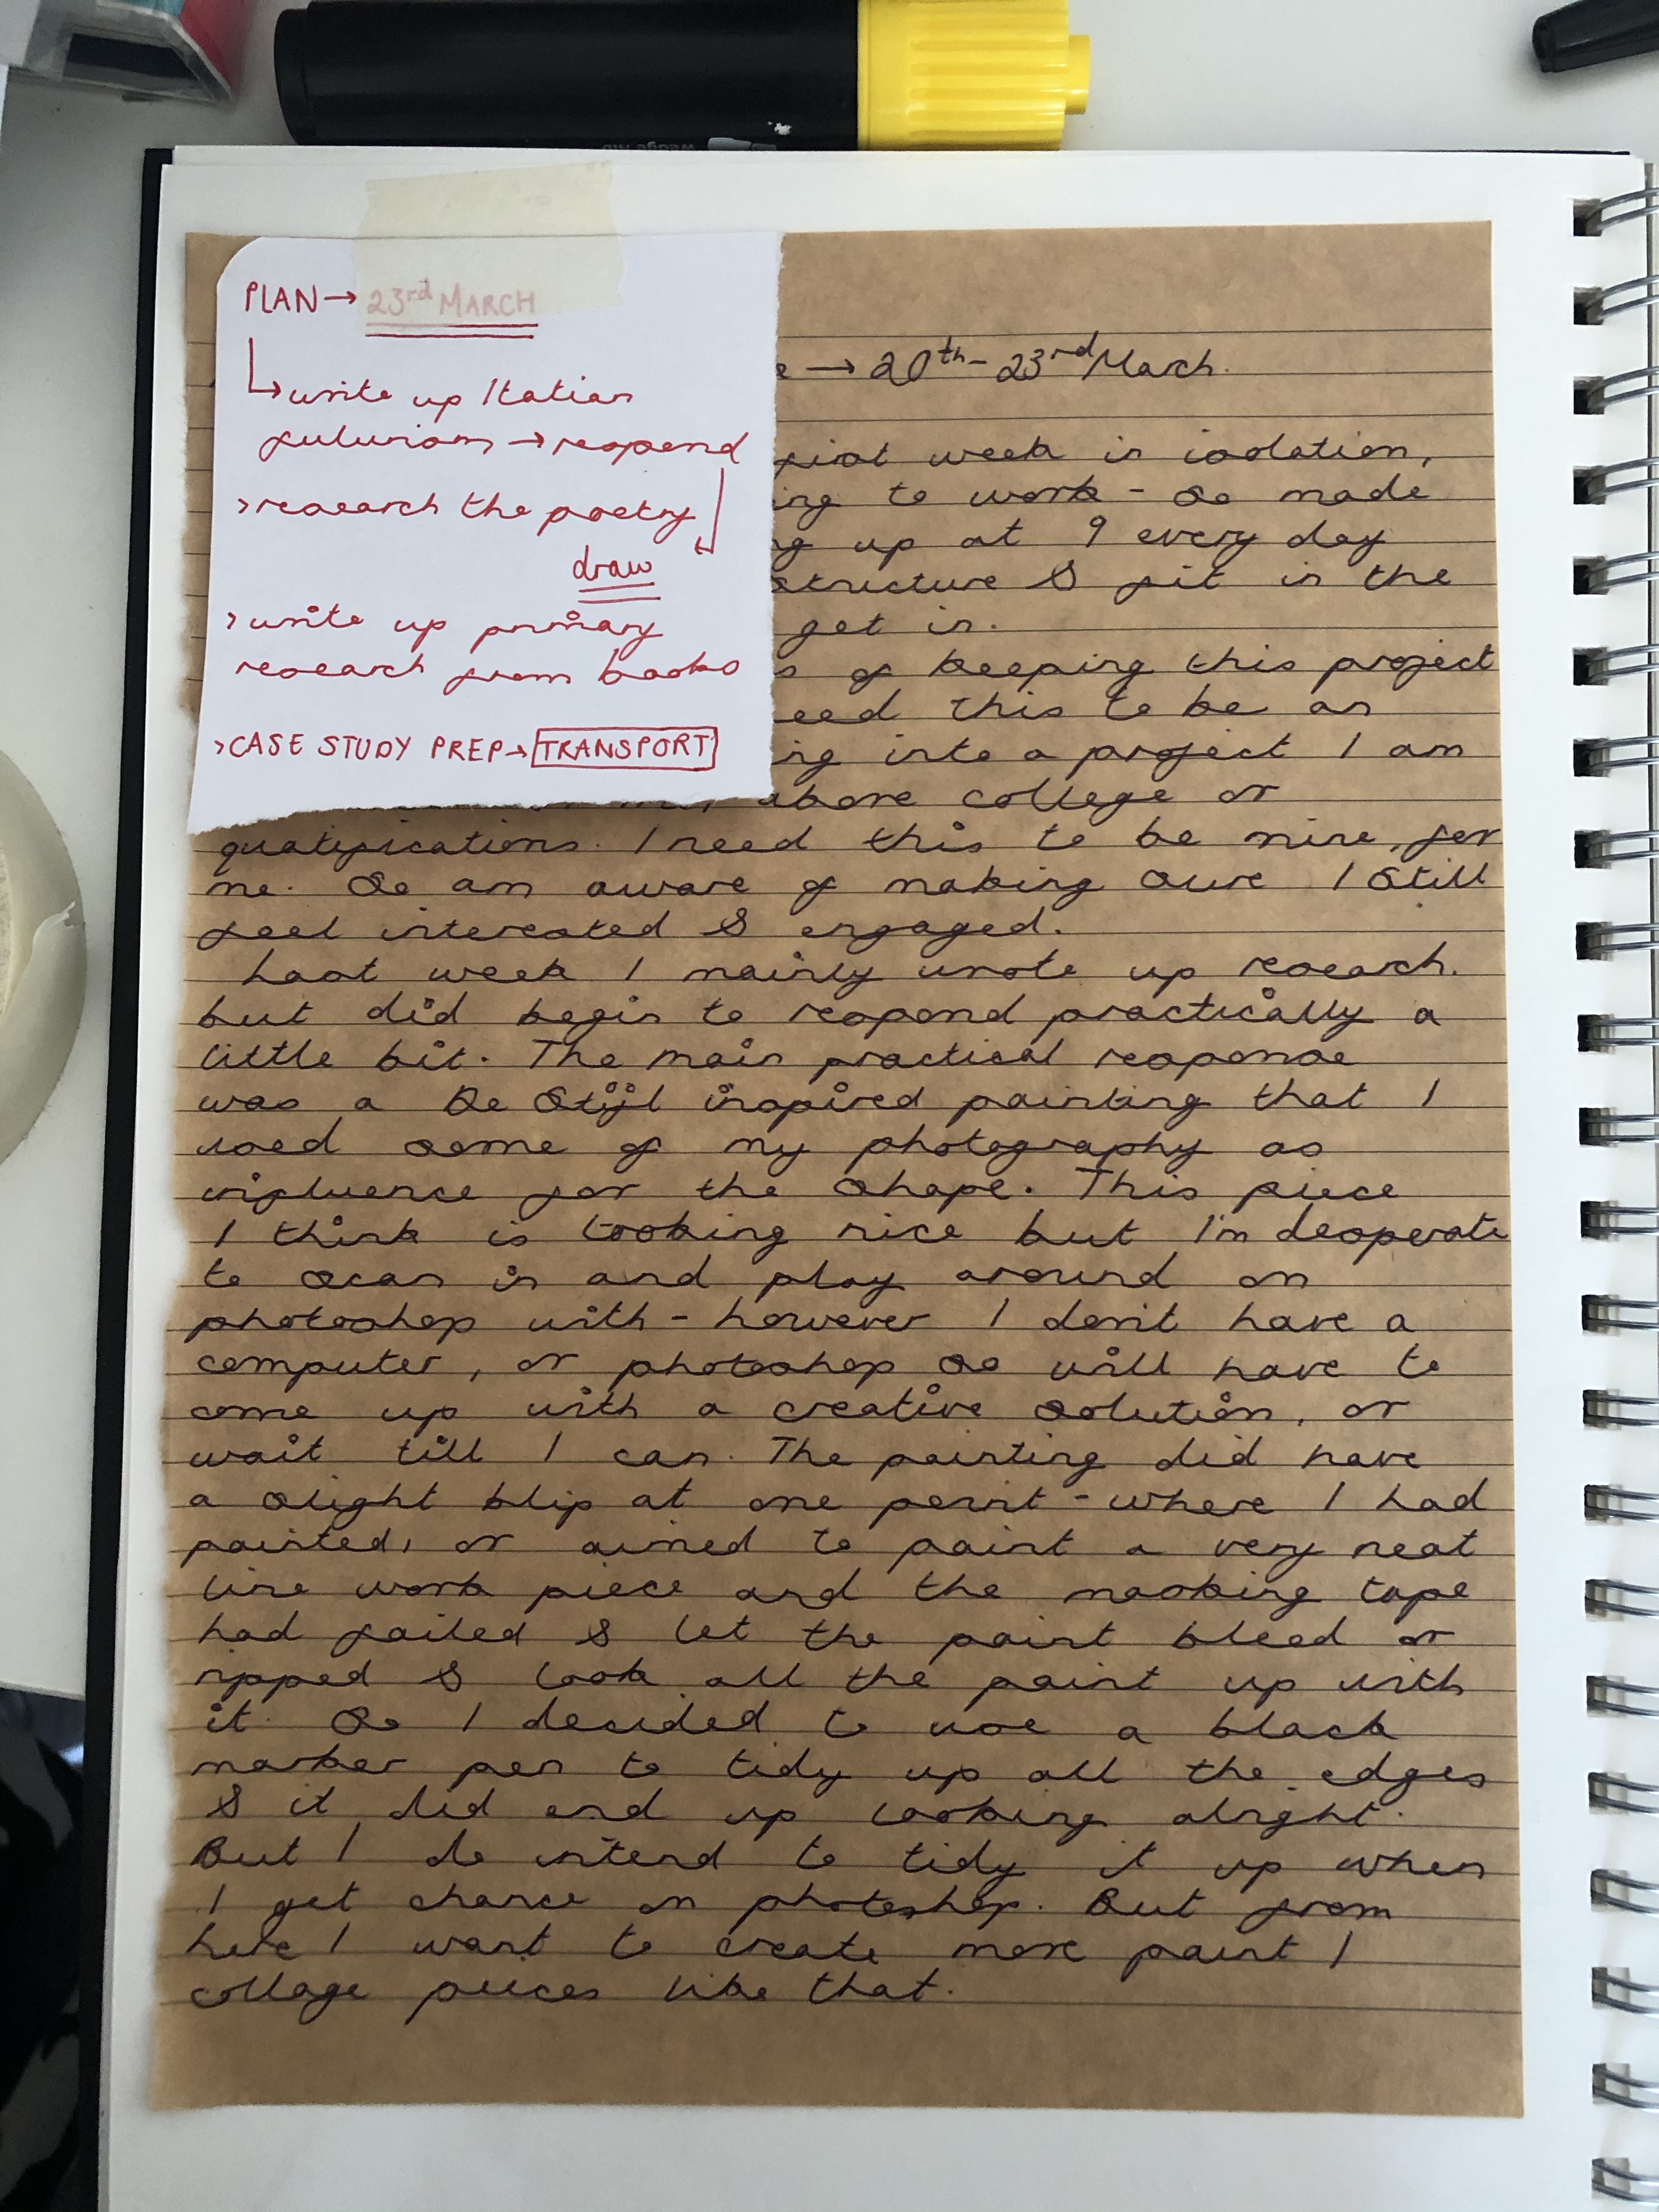 PLAN → 23rd MARCH
↳ write up Italian
futurism → respond
> research the poetry
draw
> write up primary
research from books
> CASE STUDY PREP → TRANSPORT
→ 20th - 23rd March.
first week in isolation,
ing to work - So made
ng up at 9 every day
structure & fit in the
get in.
s of keeping this project
eed this to be an
ing into a project I am
above college or
qualifications. I need this to be mine, for
me. So am aware of making sure I still
feel interested & engaged.
Last week I mainly wrote up research.
but did begin to respond practically a
little bit. The main practical response
was a De Stijl inspired painting that I
used some of my photography as
influence for the shape. This piece
I think is looking nice but I'm desperate
to scan in and play around on
photoshop with - however I don't have a
computer, or photoshop so will have to
come up with a creative solution, or
wait till I can. The painting did have
a slight blip at one point - where I had
painted, or aimed to paint a very neat
line work piece and the masking tape
had failed & let the paint bleed or
ripped & took all the paint up with
it. So I decided to use a black
marker pen to tidy up all the edges
& it did end up looking alright.
But I do intend to tidy it up when
I get chance on photoshop. But from
here I want to create more paint /
collage pieces like that.